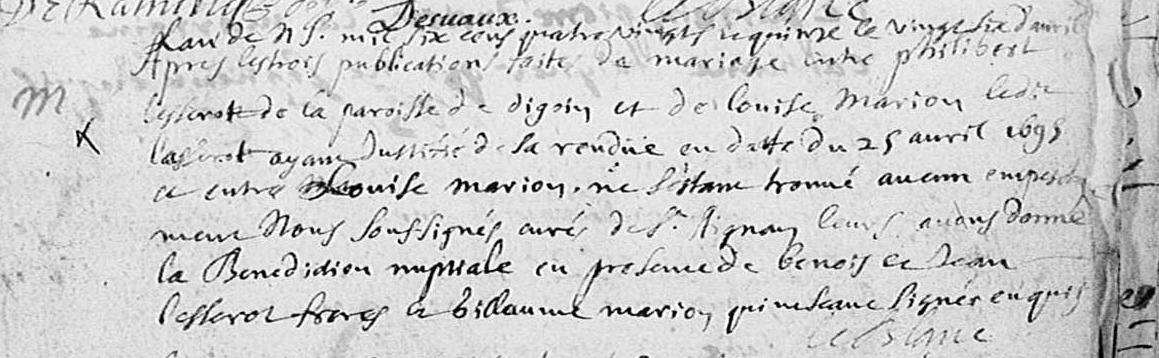 Desuaux. le Blanc
Lan de N S. mil six cens quatre vingts et quinze le vingt six d'auril
Apres les trois publications faites de mariage entre philibert
m
lesserot de la paroisse de digoin et de louise Marion ledit
lasserot ayant Justifié de sa rendüe en datte du 25 auril 1695
et entre Louise marion. ne sestant trouué aucun empesche
ment Nous soussignés curé de St. Aignan leurs auons donné
la Benediction nuptiale en presence de benois et Jean
lesserot freres et Gillaume marion qui ne scaue signer enquis
le Blanc